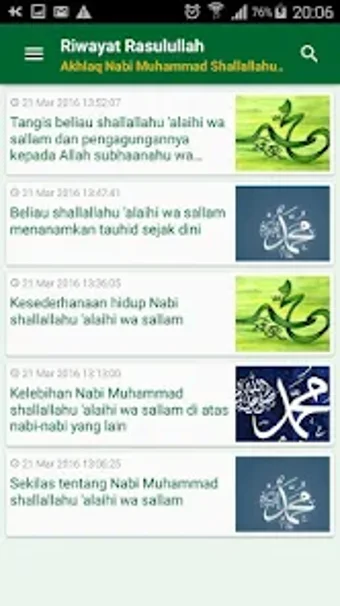 76% 20:06
Riwayat Rasulullah
Akhlaq Nabi Muhammad Shallallahu..
21 Mar 2016 13:52:07
Tangis beliau shallallahu 'alaihi wa
sallam dan pengagungannya
kepada Allah subhaanahu wa...
21 Mar 2016 13:47:41
Beliau shallallahu 'alaihi wa sallam
menanamkan tauhid sejak dini
21 Mar 2016 13:36:05
Kesederhanaan hidup Nabi
shallallahu 'alaihi wa sallam
21 Mar 2016 13:13:00
Kelebihan Nabi Muhammad
shallallahu 'alaihi wa sallam di atas
nabi-nabi yang lain
محمد
21 Mar 2016 13:06:25
Sekilas tentang Nabi Muhammad
shallallahu 'alaihi wa sallam
محمد